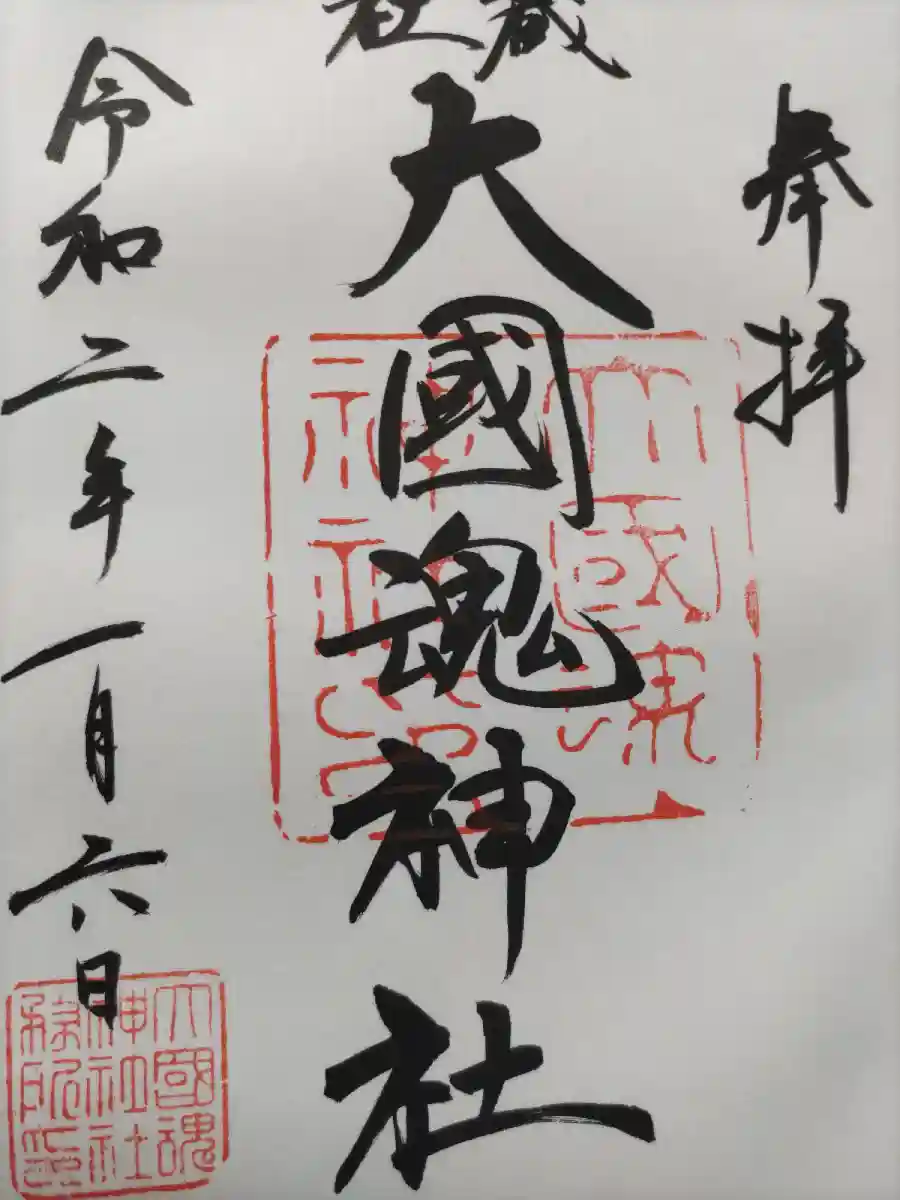 奉拝
蔵
社
大國魂神社
令和二年一月六日
大國魂
神社印
大國魂
神社社
務所印